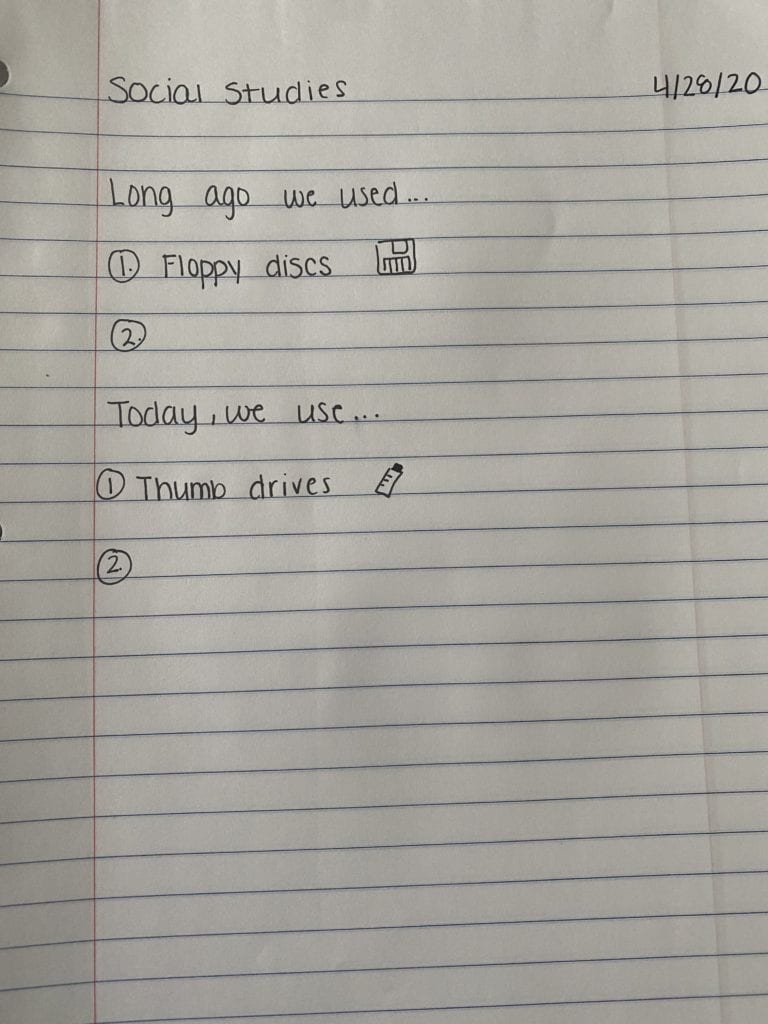 Social Studies 4/28/20
Long ago we used...
1. Floppy discs
2.
Today, we use...
1 Thumb drives
2.